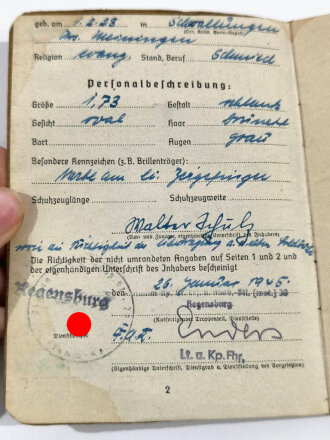 geb. am 1.2.23 in Schwallungen
Krs. Meiningen (Ort, Kreis, Verw.-Bezirk)
Religion evang. Stand, Beruf Schmied
Personalbeschreibung:
Größe 1,73 Gestalt schlank
Gesicht oval Haar brünett
Bart Augen grau
Besondere Kennzeichen (z.B. Brillenträger):
Narbe am li. Zeigefinger
Schuhzeuglänge Schuhzeugweite
Walter Schulz
(Vor- und Zuname, eigenhändige Unterschrift des Inhabers)
Die Richtigkeit der nicht umrandeten Angaben auf Seiten 1 und 2 und
der eigenhändigen Unterschrift des Inhabers bescheinigt
, den 26. Januar 1945.
Regensburg
Regensburg
(Ausfertigender Truppenteil, Dienststelle)
Dienstsiegel
Lt. u. Kp. Fhr.
(Eigenhändige Unterschrift, Dienstgrad u. Dienststellung des Vorgesetzten)
2